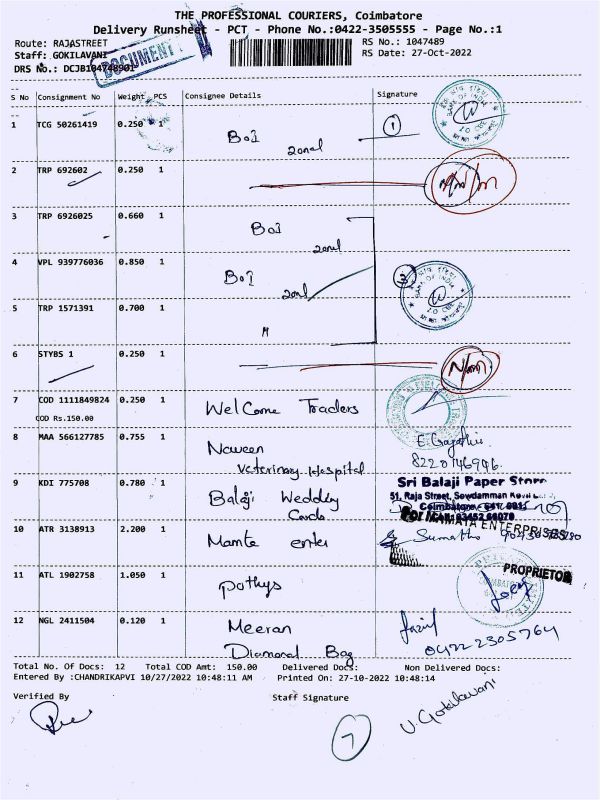 THE PROFESSIONAL COURIERS, Coimbatore
Delivery Runsheet - PCT - Phone No.:0422-3505555 - Page No.:1
Route: RAJASTREET
RS No.: 1047489
Staff: GOKILAVANI
RS Date: 27-Oct-2022
DRS No.: DCJB104748901
DOCUMENT
S No Consignment No Weight PCS Consignee Details Signature
1 TCG 50261419 0.250 1 BoI
zonal
1
BANK OF INDIA
2 TRP 692602 0.250 1
3 TRP 6926025 0.660 1 BoI
zonal
4 VPL 939776036 0.850 1 BoI
zonal
3
BANK OF INDIA
5 TRP 1571391 0.700 1
6 STYBS 1 0.250 1
7 COD 1111849824 0.250 1 Welcome Traders
COD Rs.150.00
8 MAA 566127785 0.755 1 Naveen
Veterinary Hospital
E. Gayathri
8220146946
9 KDI 775708 0.780 1 Balaji Wedding
Cards
Sri Balaji Paper Store
51, Raja Street, Sowdamman
Coimbatore
10 ATR 3138913 2.200 1 Mamta enter
For MAMATA ENTERPRISES
PROPRIETOR
11 ATL 1902758 1.050 1 pothys
12 NGL 2411504 0.120 1 Meeran
Diamond Bag
0422 2305764
Total No. Of Docs: 12 Total COD Amt: 150.00 Delivered Docs: Non Delivered Docs:
Entered By :CHANDRIKAPVI 10/27/2022 10:48:11 AM Printed On: 27-10-2022 10:48:14
Verified By Staff Signature
7
V. Gokilavani